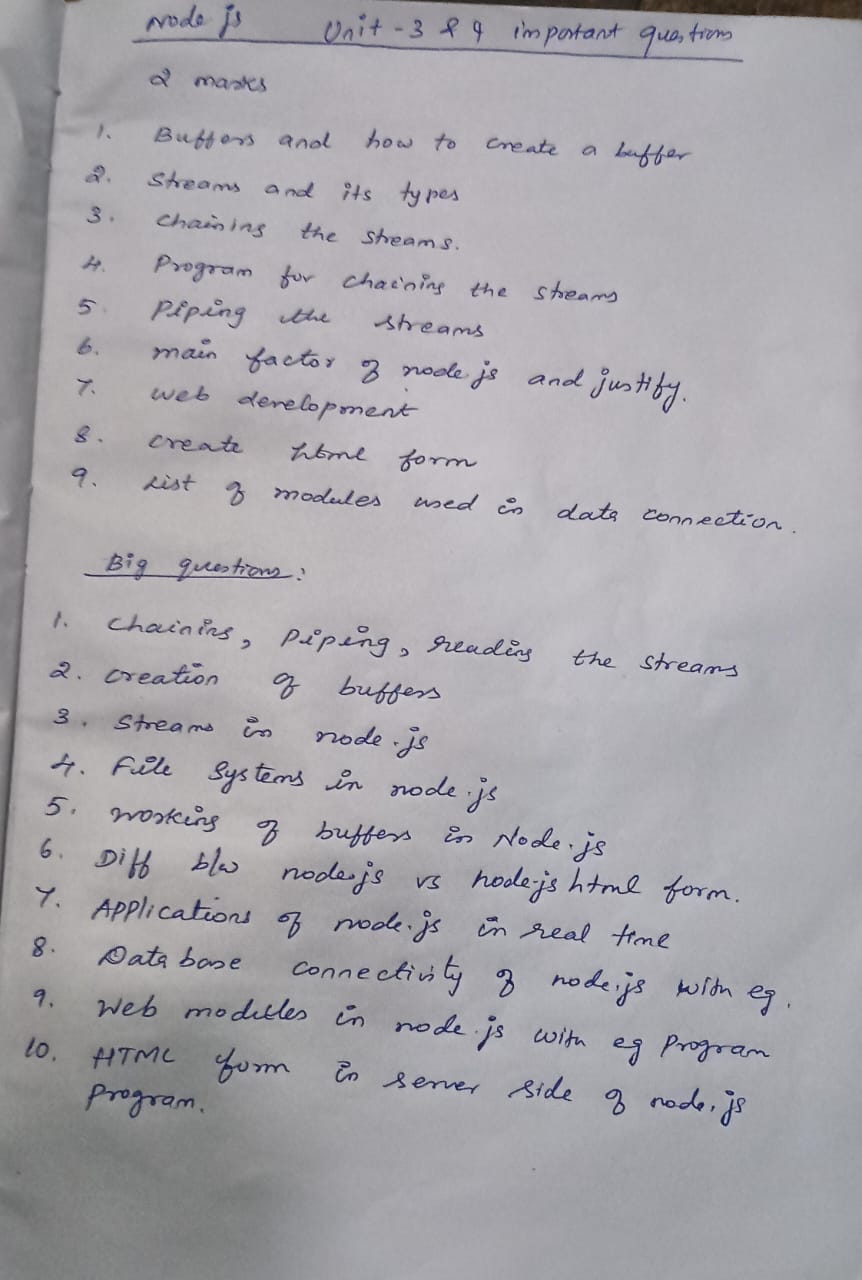 Node js Unit - 3 & 4 important questions
2 marks
1. Buffers and how to create a buffer
2. Streams and its types
3. chaining the streams.
4. Program for chaining the streams
5. Piping the streams
6. main factor of node.js and justify.
7. web development
8. create html form
9. List of modules used in data connection.
Big questions:
1. chaining, piping, reading the streams
2. creation of buffers
3. Streams in node.js
4. File Systems in node.js
5. working of buffers in Node.js
6. Diff b/w node.js vs node.js html form.
7. Applications of node.js in real time
8. Data base connectivity of node.js with eg.
9. Web modules in node.js with eg program
10. HTML form in server side of node.js
program.